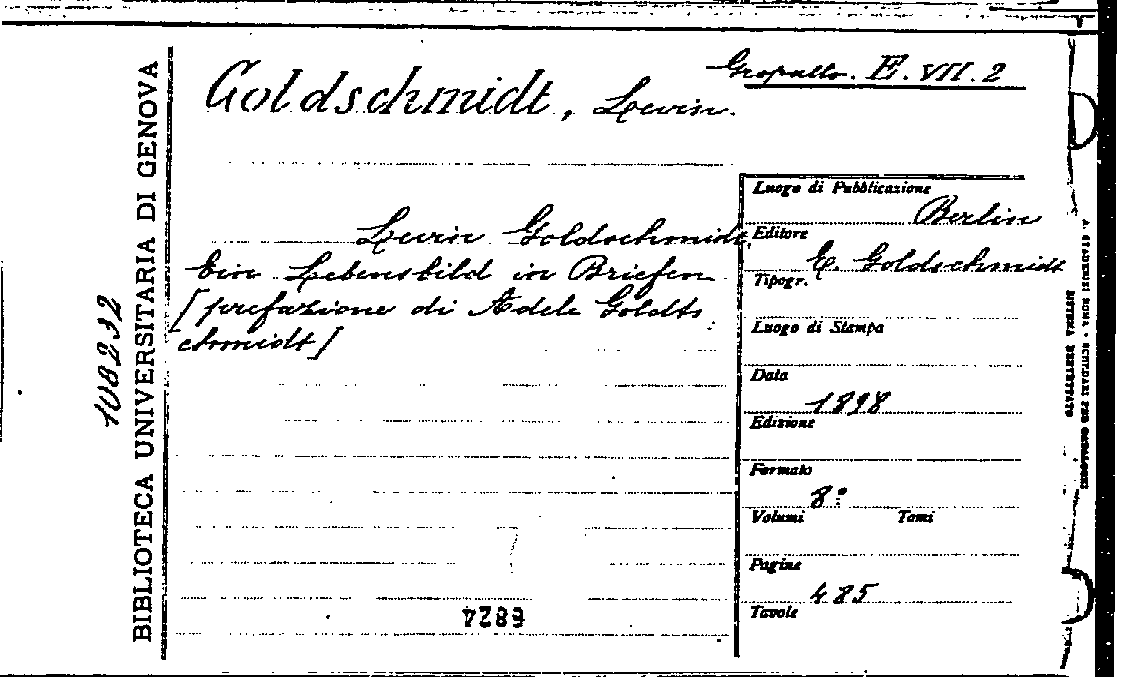 Gropallo. E. VII. 2
Goldschmidt, Levin.
Levin Goldschmidt,
Ein Lebensbild in Briefen
[prefazione di Adele Goldts
chmidt]
Luogo di Pubblicazione
Berlin
Editore
E. Goldschmidt
Tipogr.
Luogo di Stampa
Data
1898
Edizione
Formato
8º
Volumi Tomi
Pagine
485
Tavole
6824
BIBLIOTECA UNIVERSITARIA DI GENOVA
108232